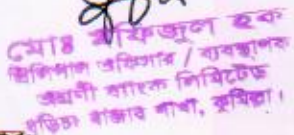 মোঃ রফিজুল হক
প্রিন্সিপাল অফিসার / ব্যবস্থাপক
অগ্রণী ব্যাংক লিমিটেড
বাজার শাখা, কুমিল্লা।